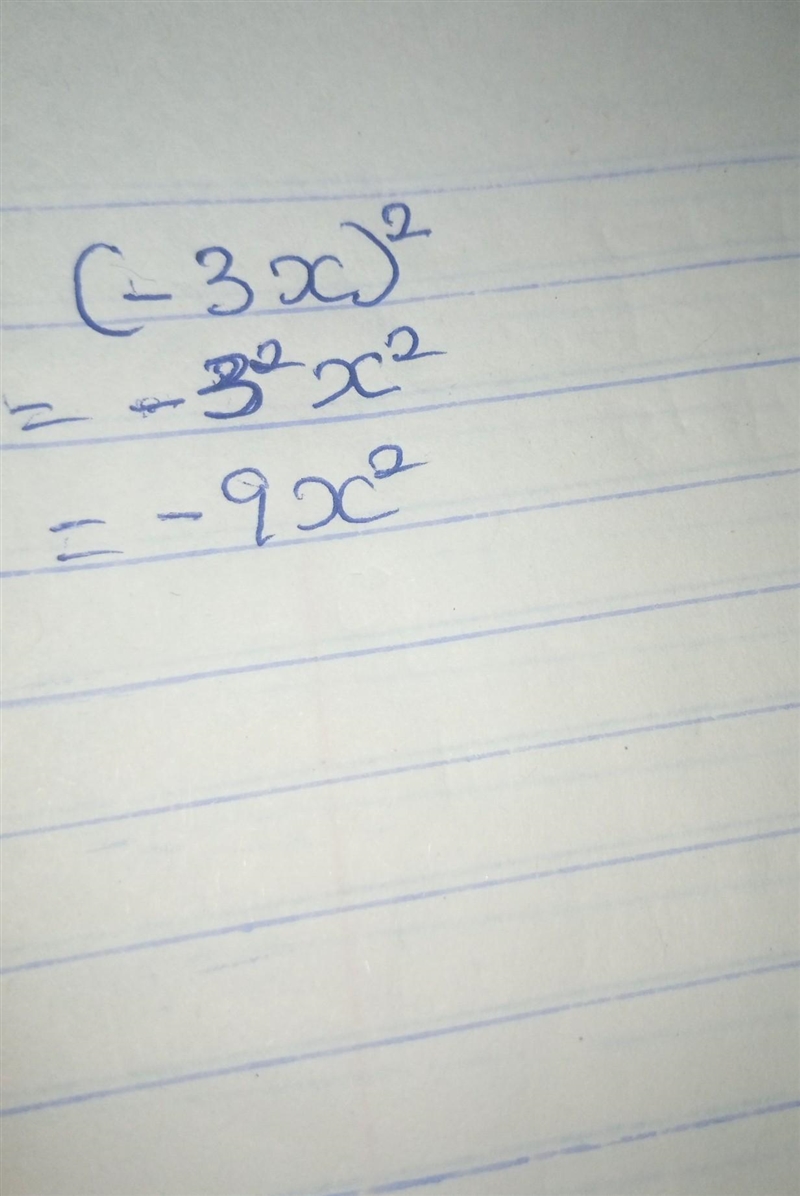 (-3x)²
= -3²x²
= -9x²